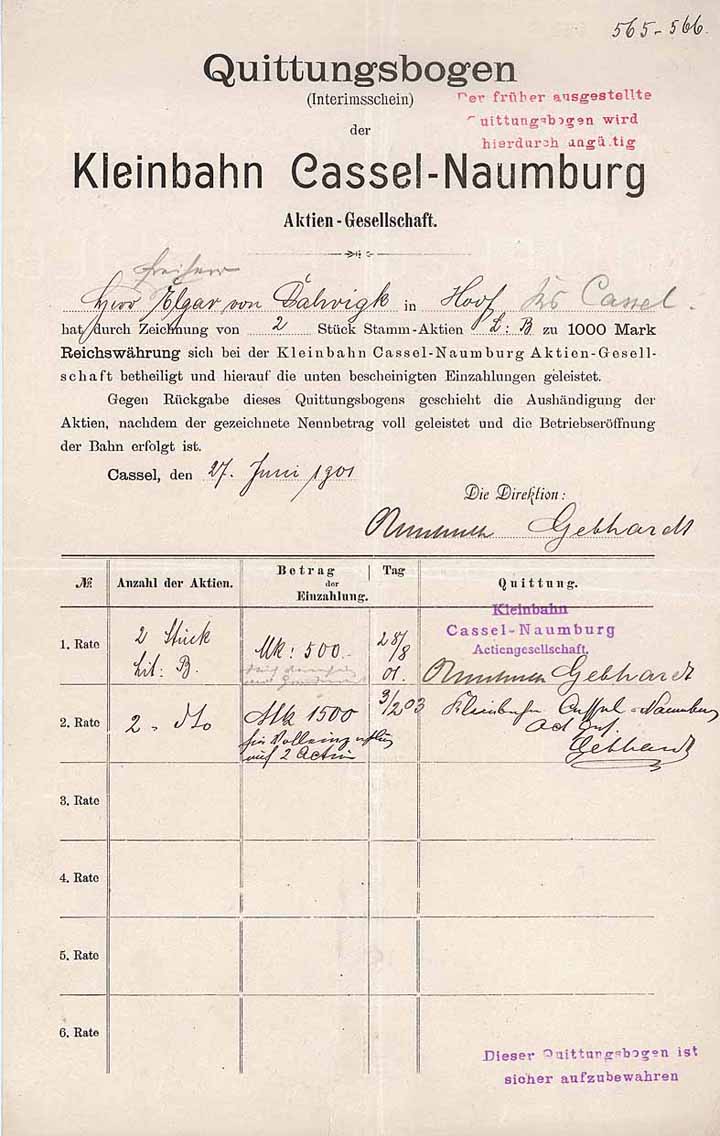 565-566.
Quittungsbogen
(Interimsschein)
Der früher ausgestellte
Quittungsbogen wird
hierdurch ungültig
der
Kleinbahn Cassel-Naumburg
Aktien-Gesellschaft.
Freiherr
Herr Elgar von Dalwigk in Hoof Krs Cassel.
hat durch Zeichnung von 2 Stück Stamm-Aktien L: B zu 1000 Mark
Reichswährung sich bei der Kleinbahn Cassel-Naumburg Aktien-Gesell-
schaft betheiligt und hierauf die unten bescheinigten Einzahlungen geleistet.
Gegen Rückgabe dieses Quittungsbogens geschieht die Aushändigung der
Aktien, nachdem der gezeichnete Nennbetrag voll geleistet und die Betriebseröffnung
der Bahn erfolgt ist.
Cassel, den 27. Juni 1901
Die Direktion:
Gebhardt
№ Anzahl der Aktien. Betrag der Einzahlung. Tag Quittung.
Kleinbahn
Cassel-Naumburg
Actiengesellschaft.
1. Rate 2 Stück Lit: B. Mk: 500.- 28/8 01. Gebhardt
2. Rate 2 " dto Mk 1500 3/2 03 Kleinbahn Cassel-Naumburg
auf 2 Actien
Act Ges.
Gebhardt
3. Rate
4. Rate
5. Rate
6. Rate
Dieser Quittungsbogen ist
sicher aufzubewahren